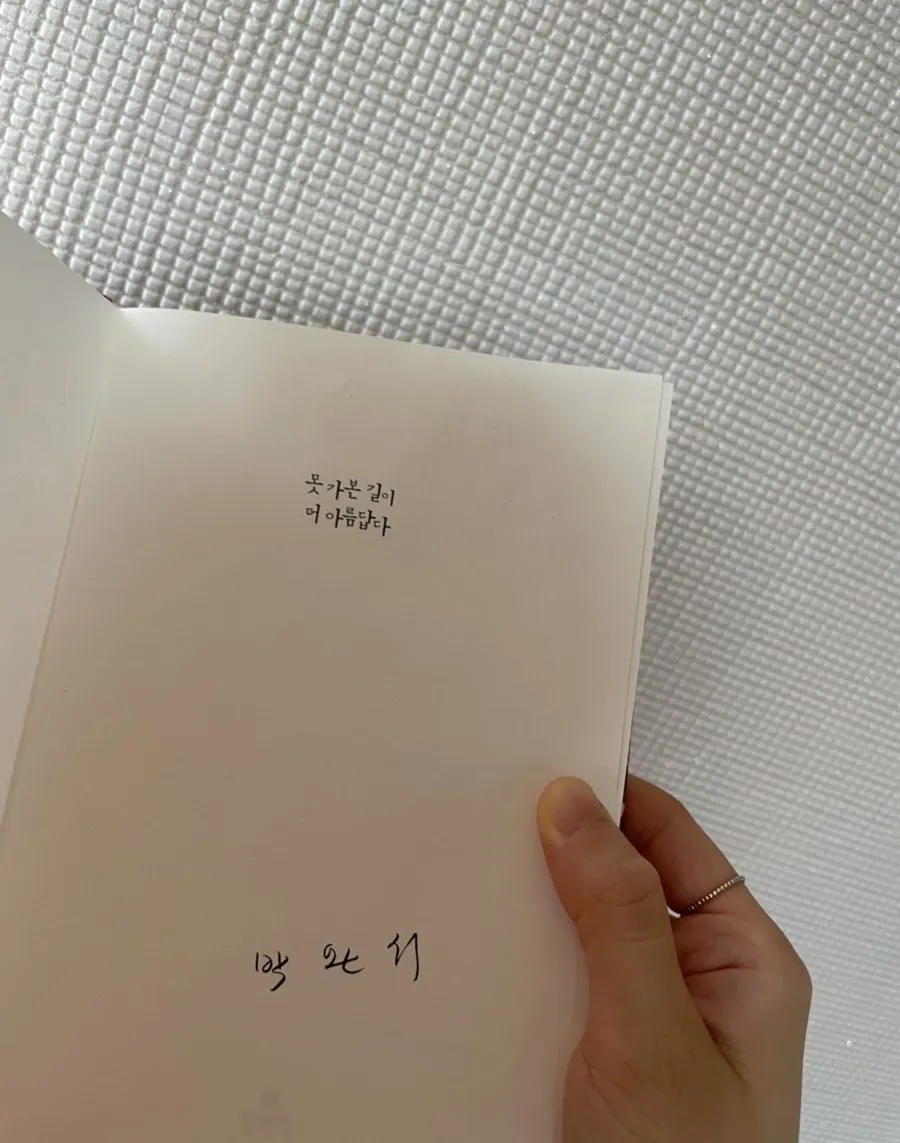 못 가본 길이
더 아름답다
박 완 서